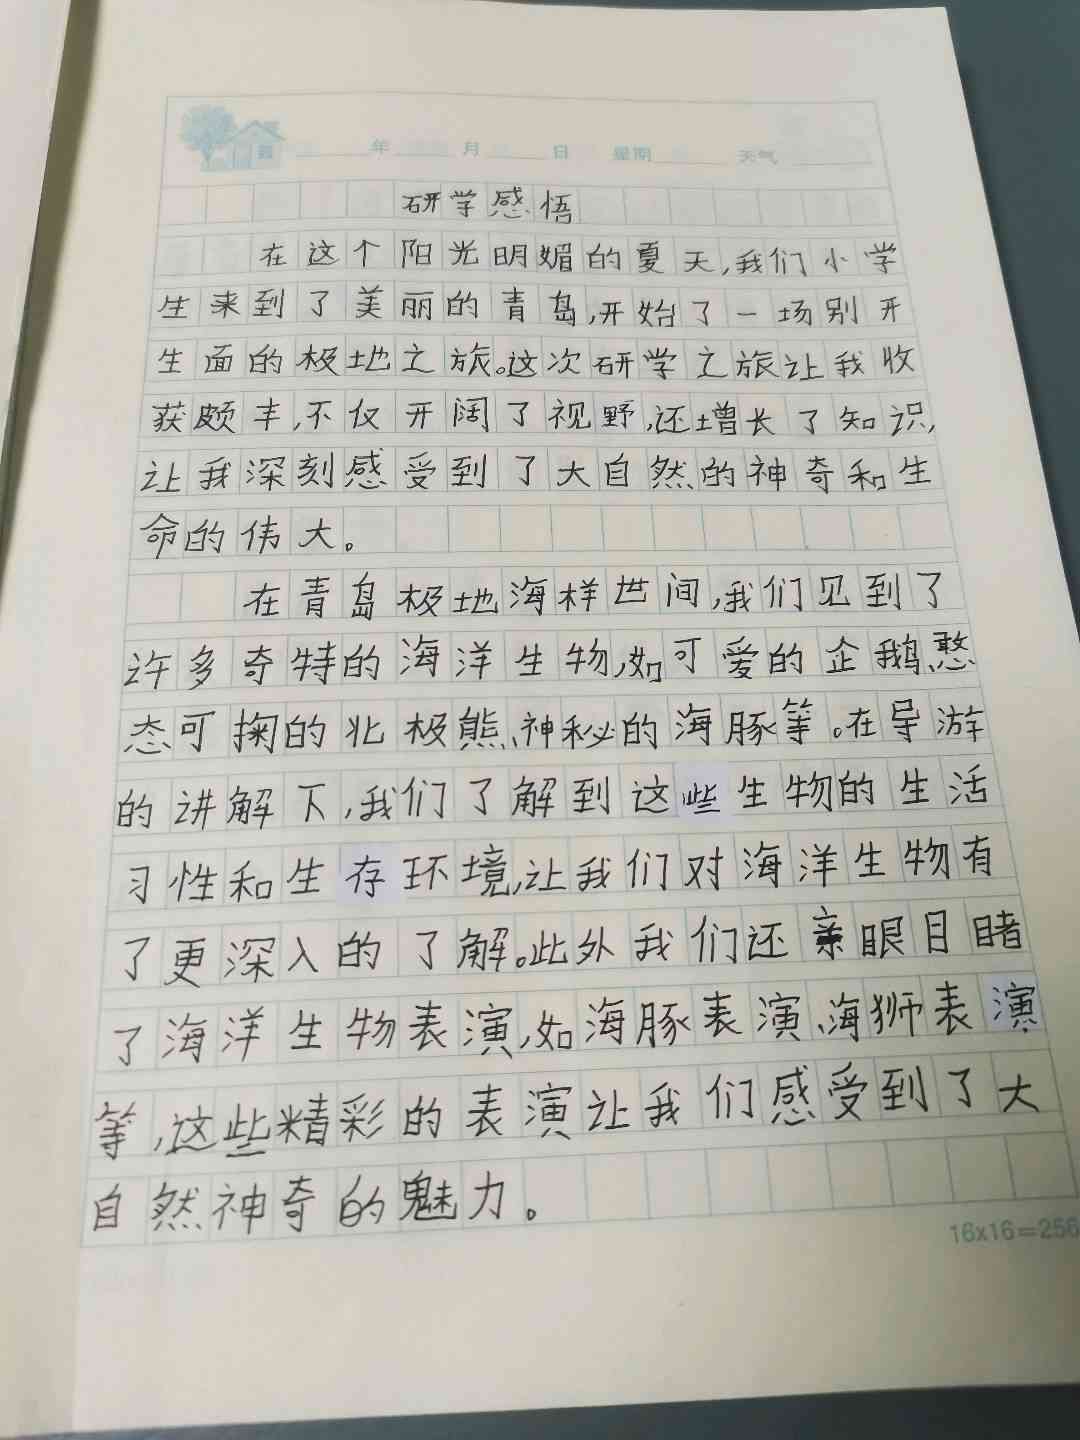 年 月 日 星期 天气
研学感悟
在这个阳光明媚的夏天,我们小学
生来到了美丽的青岛,开始了一场别开
生面的极地之旅。这次研学之旅让我收
获颇丰,不仅开阔了视野,还增长了知识,
让我深刻感受到了大自然的神奇和生
命的伟大。
在青岛极地海样世间,我们见到了
许多奇特的海洋生物,如可爱的企鹅、憨
态可掬的北极熊、神秘的海豚等。在导游
的讲解下,我们了解到这些生物的生活
习性和生存环境,让我们对海洋生物有
了更深入的了解。此外我们还亲眼目睹
了海洋生物表演,如海豚表演、海狮表演
等,这些精彩的表演让我们感受到了大
自然神奇的魅力。
16x16=256